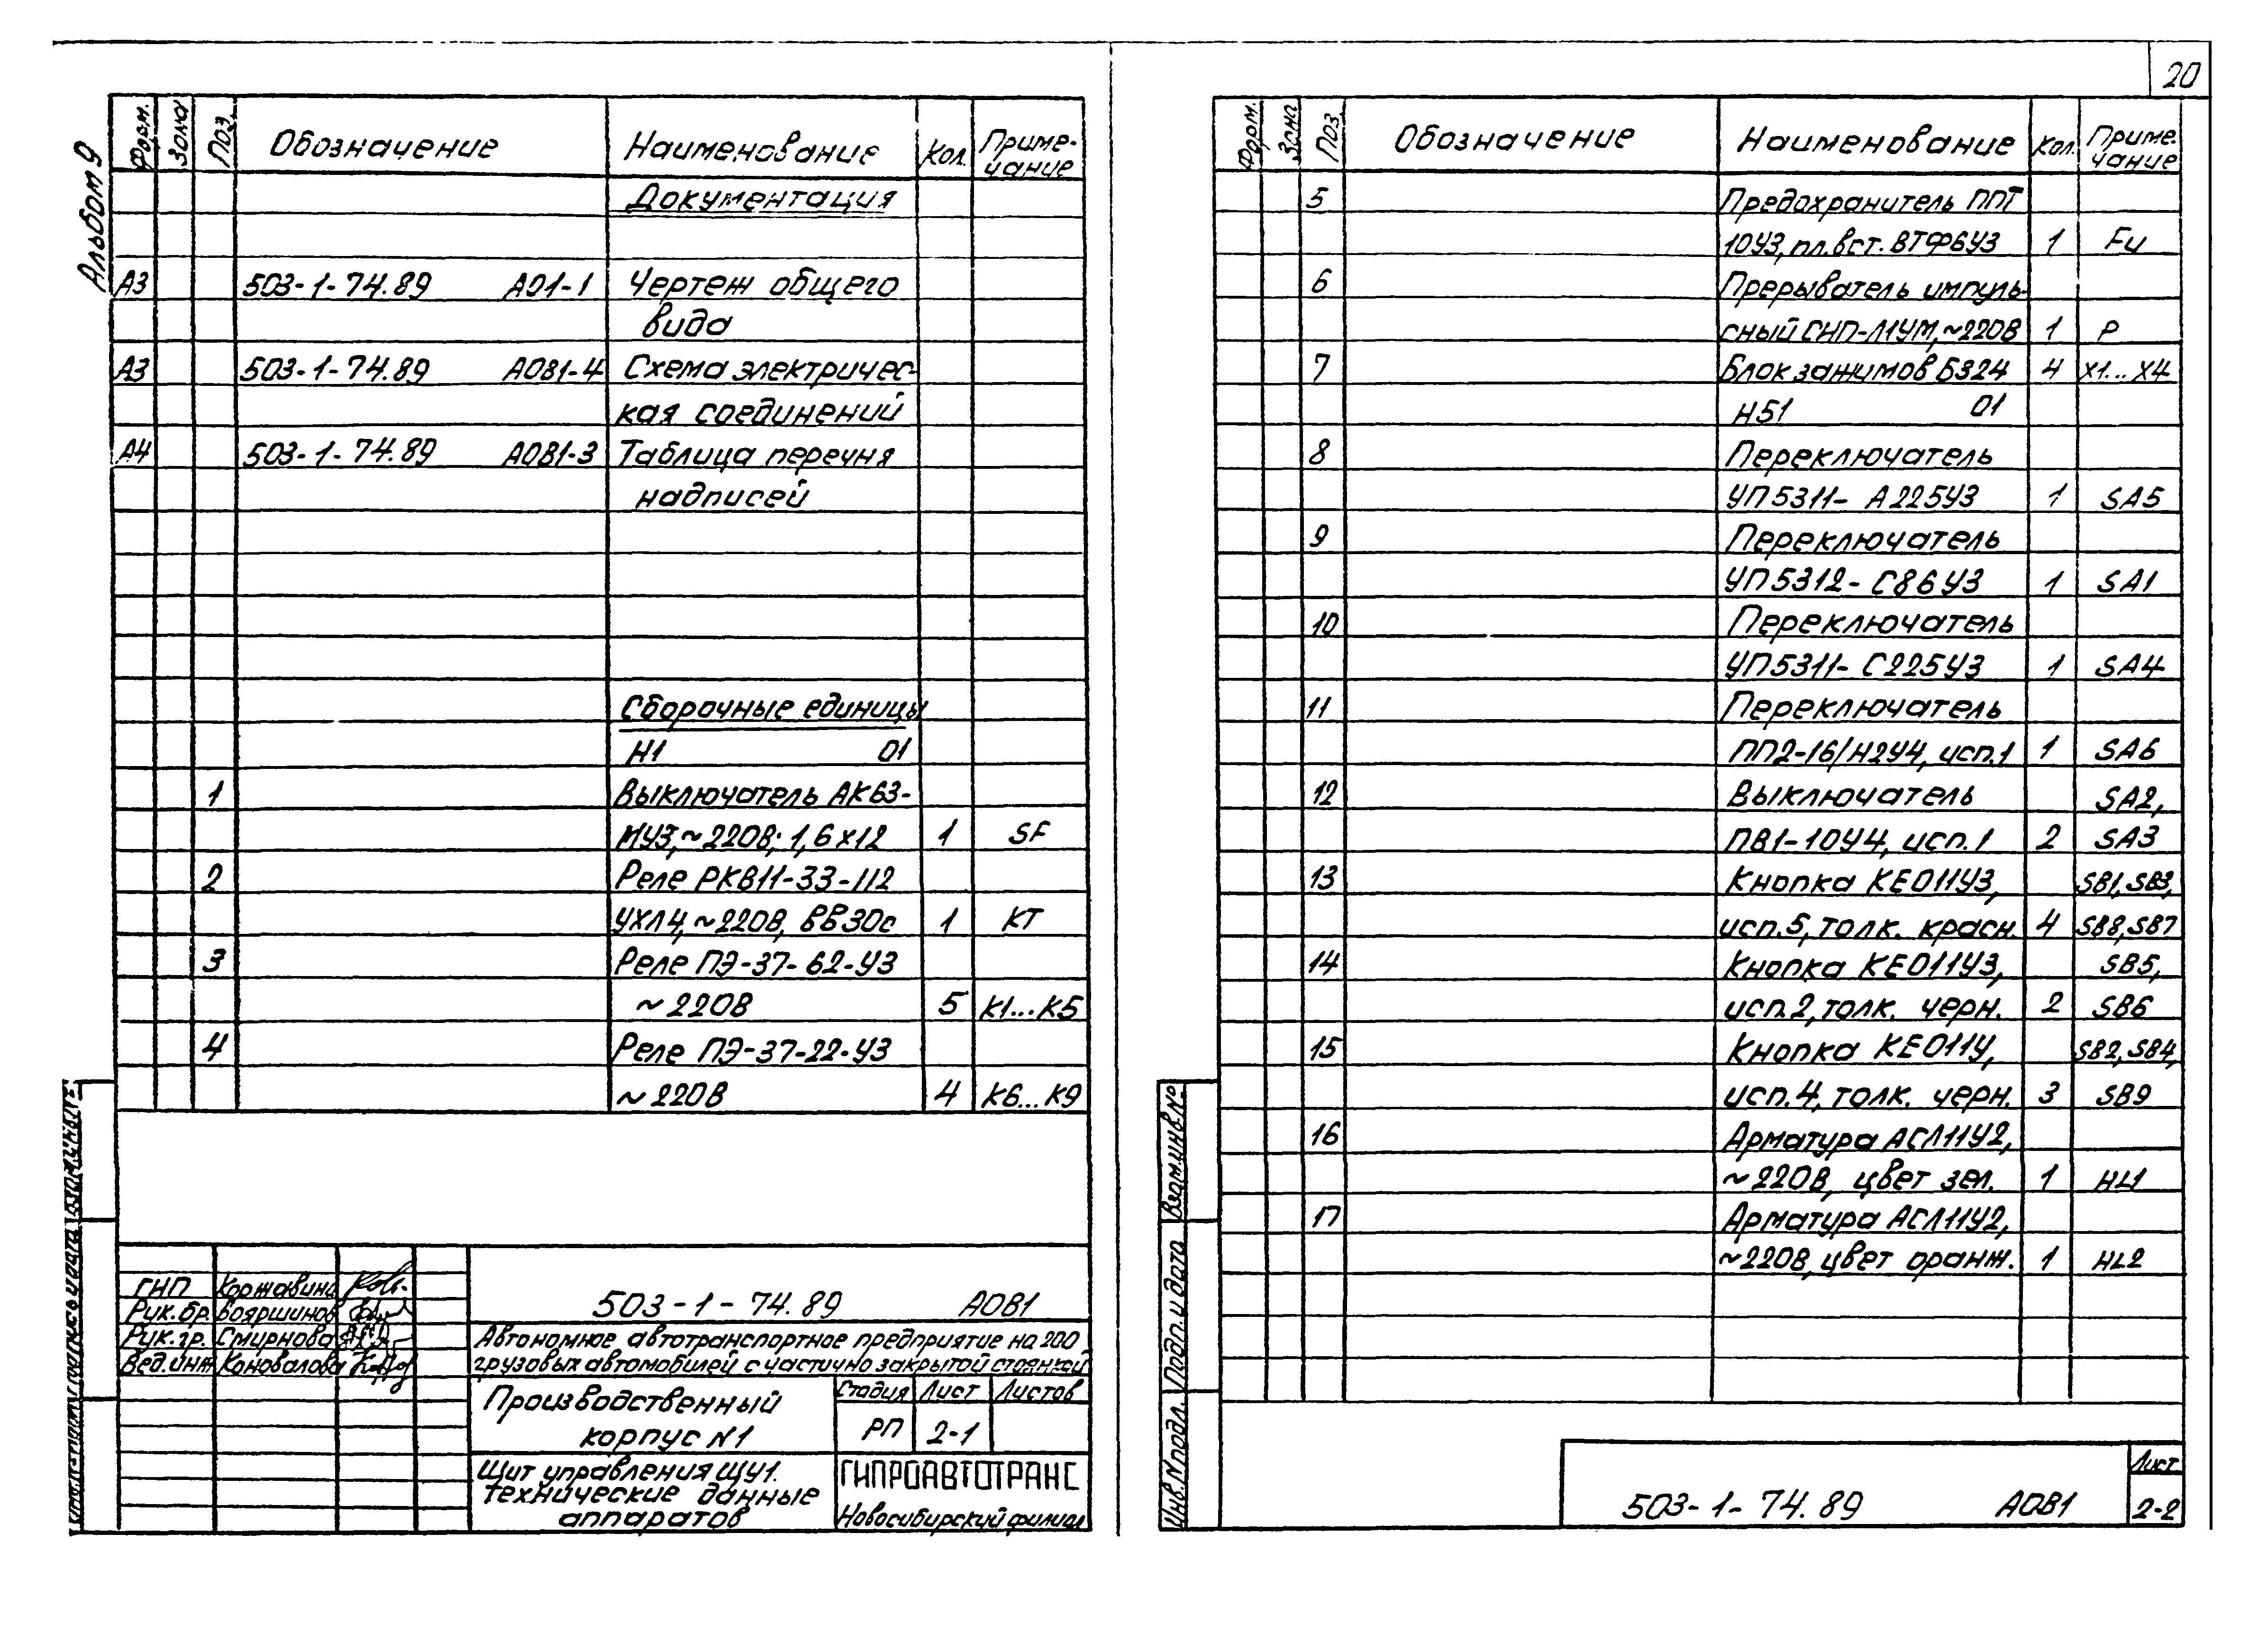 20
Альбом 9
Форм. Зона Поз. Обозначение Наименование Кол. Приме-
чание
Документация
А3 503-1-74.89 А01-1 Чертеж общего
вида
А3 503-1-74.89 АОВ1-4 Схема электричес-
кая соединений
А4 503-1-74.89 АОВ1-3 Таблица перечня
надписей
Сборочные единицы
Н1 01
1 Выключатель АК63-
МУ3,~220В; 1,6х12 1 SF
2 Реле РКВ11-33-112
УХЛ4,~220В, ВВ30с 1 КТ
3 Реле ПЭ-37-62-У3
~220В 5 К1...К5
4 Реле ПЭ-37-22-У3
~220В 4 К6...К9
ГНП Коржавина
Рук.бр. Бояршинов
Рук.гр. Смирнова
Вед.инж Коновалова
503-1-74.89 АОВ1
Автономное автотранспортное предприятие на 200
грузовых автомобилей с частично закрытой стоянкой
Производственный
корпус N1
Стадия Лист Листов
РП 2-1
Щит управления ЩУ1.
Технические данные
аппаратов
ГИПРОАВТОТРАНС
Новосибирский филиал
Форм. Зона Поз. Обозначение Наименование Кол. Приме-
чание
5 Предохранитель ППТ
10У3, пл.вст. ВТФ6У3 1 Fu
6 Прерыватель импуль-
сный СНП-Л1УМ,~220В 1 Р
7 Блок зажимов Б324 4 Х1...Х4
Н51 01
8 Переключатель
УП5311-А225У3 1 SA5
9 Переключатель
УП5312-С86У3 1 SA1
10 Переключатель
УП5311-С225У3 1 SA4
11 Переключатель
ПП2-16/Н2У4, исп.1 1 SA6
12 Выключатель SA2,
ПВ1-10У4, исп.1 2 SA3
13 Кнопка КЕ011У3, SB1, SB3,
исп.5, толк. красн. 4 SB8, SB7
14 Кнопка КЕ011У3, SB5,
исп.2, толк. черн. 2 SB6
15 Кнопка КЕ011У, SB2, SB4,
исп.4, толк. черн. 3 SB9
16 Арматура АСЛ11У2,
~220В, цвет зел. 1 HL1
17 Арматура АСЛ11У2,
~220В, цвет оранж. 1 HL2
Взам.инв.№
Подп. и дата
Инв.N подл.
503-1-74.89 АОВ1
Лист
2-2